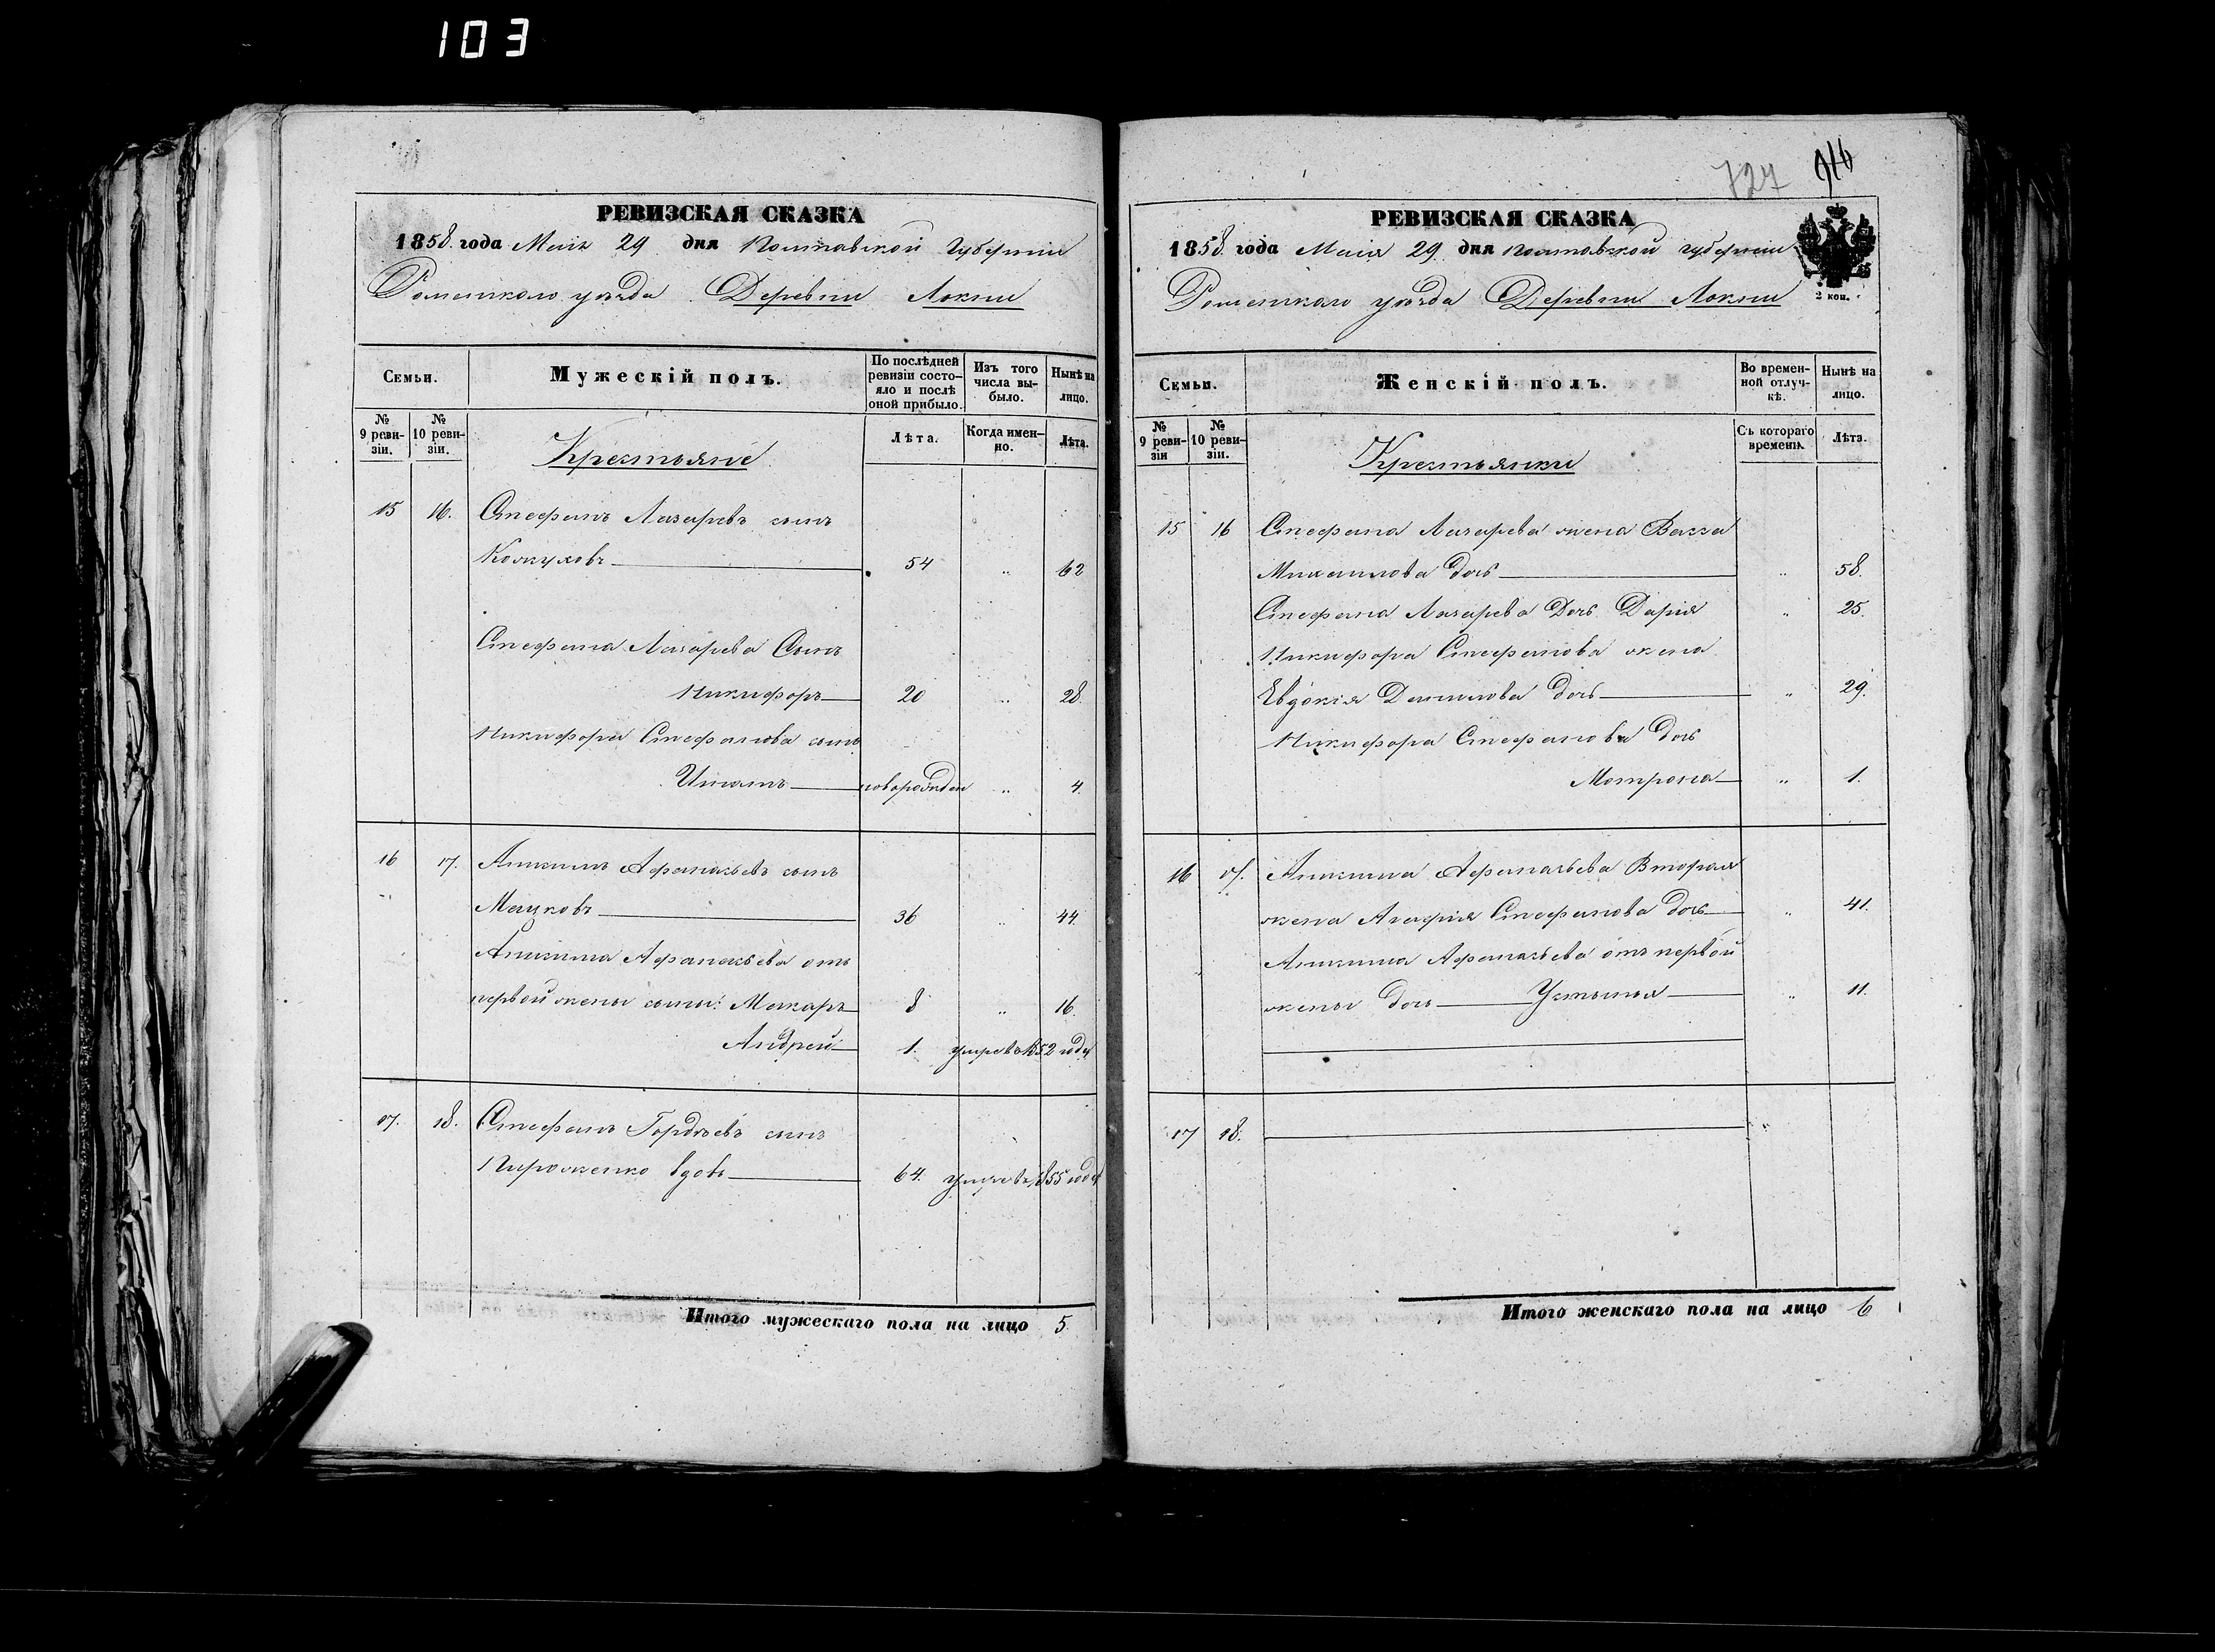 103
РЕВИЗСКАЯ СКАЗКА
1858. года Маия 29 дня Полтавской Губернии
Роменского уѣзда Деревни Локни
Семьи.
Мужескій полъ.
По послѣдней ревизіи состояло и послѣ оной прибыло.
Изъ того числа выбыло.
Нынѣ на лицо.
№ 9 ревизіи.
№ 10 ревизіи.
Крестьяне
Лѣта.
Когда именно.
Лѣта.
15 16. Стефанъ Лазаревъ сынъ
Кожуховъ 54 „ 62
Стефана Лазарева Сынъ
Никифоръ 20 „ 28.
Никифора Стефанова сынъ
Игнатъ новорожден „ 4.
16 17. Аникимъ Афанасьевъ сынъ
Мацковъ 36 „ 44.
Аникима Афанасьева отъ
первой жены сыны: Макаръ 8 „ 16.
Андрей 1. умре въ 1852 году
17. 18. Стефанъ Гордѣевъ сынъ
Пироженко вдовъ 64. умре въ 1855 году
Итого мужескаго пола на лицо 5
727
РЕВИЗСКАЯ СКАЗКА
1858. года Маия 29. дня Полтавской губернии
Роменского уѣзда Деревни Локни
2 коп.
Семьи.
Женскій полъ.
Во временной отлучкѣ.
Нынѣ на лицо.
№ 9 ревизіи
№ 10 ревизіи.
Крестьянки
Съ котораго времени.
Лѣта.
15 16 Стефана Лазарева жена Васса
Михайлова дочь „ 58.
Стефана Лазарева Дочь Дарія „ 25.
Никифора Стефанова жена
Евдокія Данилова дочь „ 29.
Никифора Стефанова дочь
Мотрона „ 1.
16 17. Аникима Афанасьева Вторая
жена Агафия Стефанова дочь „ 41.
Аникима Афанасьева отъ первой
жены дочь Устинья „ 11.
17 18. „
Итого женскаго пола на лицо 6